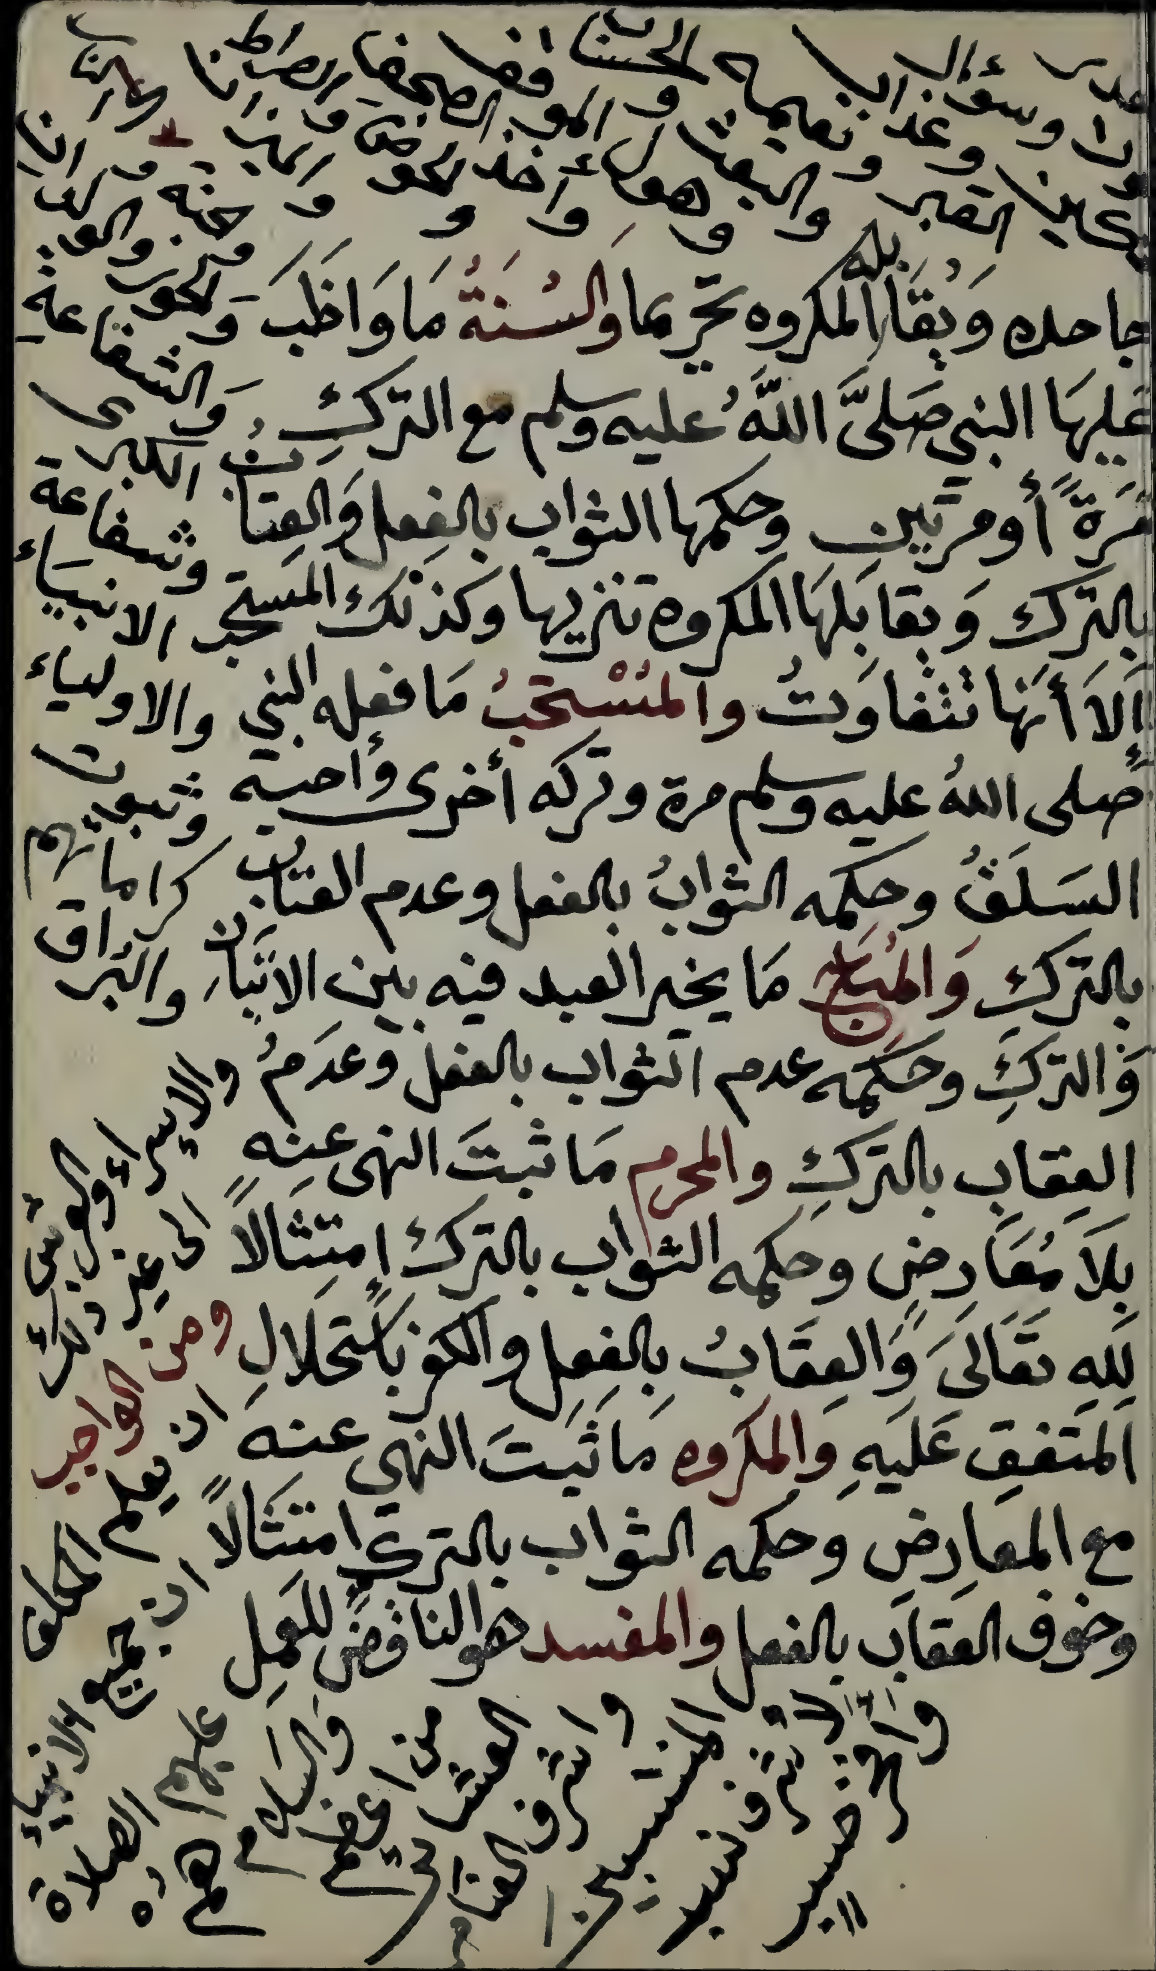 جاحده وَيُقَابله المكروه تحريما وَالسُنَةُ مَا وَاظَبَ
عَلَيهَا النبي صَلىَّ اللّهُ عليه وسلم مع التركِ
مَرةً أو مرتين وحكمها الثواب بالفِعل وَالعِتابُ
بالترك وَيقابَلهَا المكروه تنزيها وكذلك المَستحب
إلاَ أَنها تتفاوَتُ والمُسْتحَبُ مَا فعله النبي
صلى اللهُ عليه وسلم مرة وتركه أخرى وأحبه
السَلَفُ وحكمه الثوابُ بالفعل وعدم العتاب
بالتركِ وَالمُبَاح مَا يخير العبد فيه بين الاتيان
وَالتركِ وحكمه عدم الثواب بالفعل وعدَمُ
العِقاب بالتركِ والمحرم مَا ثبتَ النهى عنه
بلاَ مُعَارضٍ وحكمه الثواب بالترك إمتثالاً
لِلهِ تعَالىَ وَالعِقَابُ بالفعِل والكفر بأستحلالِ
المتفق عَلَيهِ وَالمكروه مَا ثبَتَ النهى عنه
مع المعارضِ وحكمه الثواب بالترك امتثالاً
وخوف العقابَ بالفعل والمفسد هو الناقض للعمل
القبر ونعيمه
والبعث
وهول الموقف
وأخذ الصحف
والحوض
والميزان
والصراط
والشفاعة
الكبرى
وشفاعة
الانبياء
والاولياء
وثبوت
كراماتهم
والبراق
والإسراء والعرش
الى غير ذلك
ومن الواجب
ان يعلم المكلف
ان جميع الانبياء
عليهم الصلاة
وَالسلام هم
من